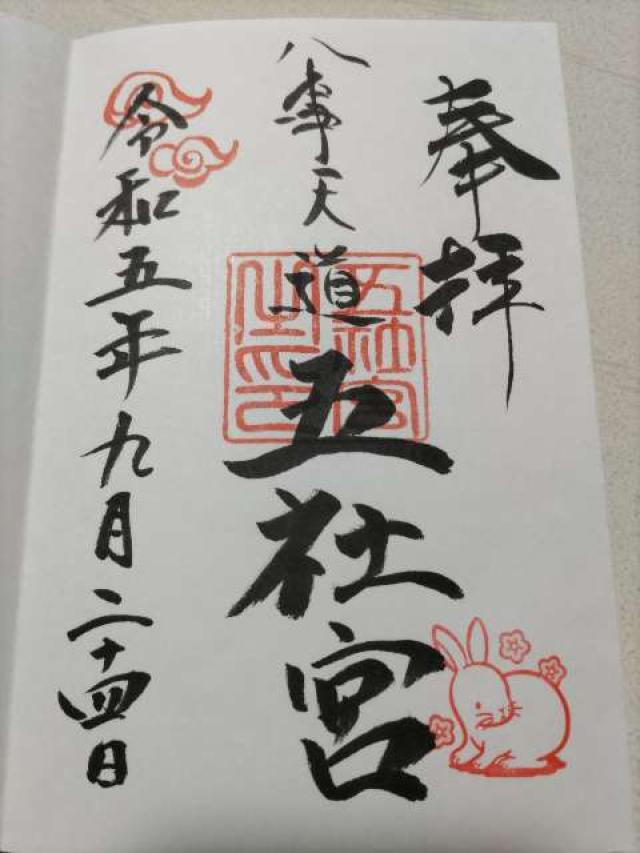 奉拝
八事天道
五社宮
五社宮之印
令和五年九月二十四日